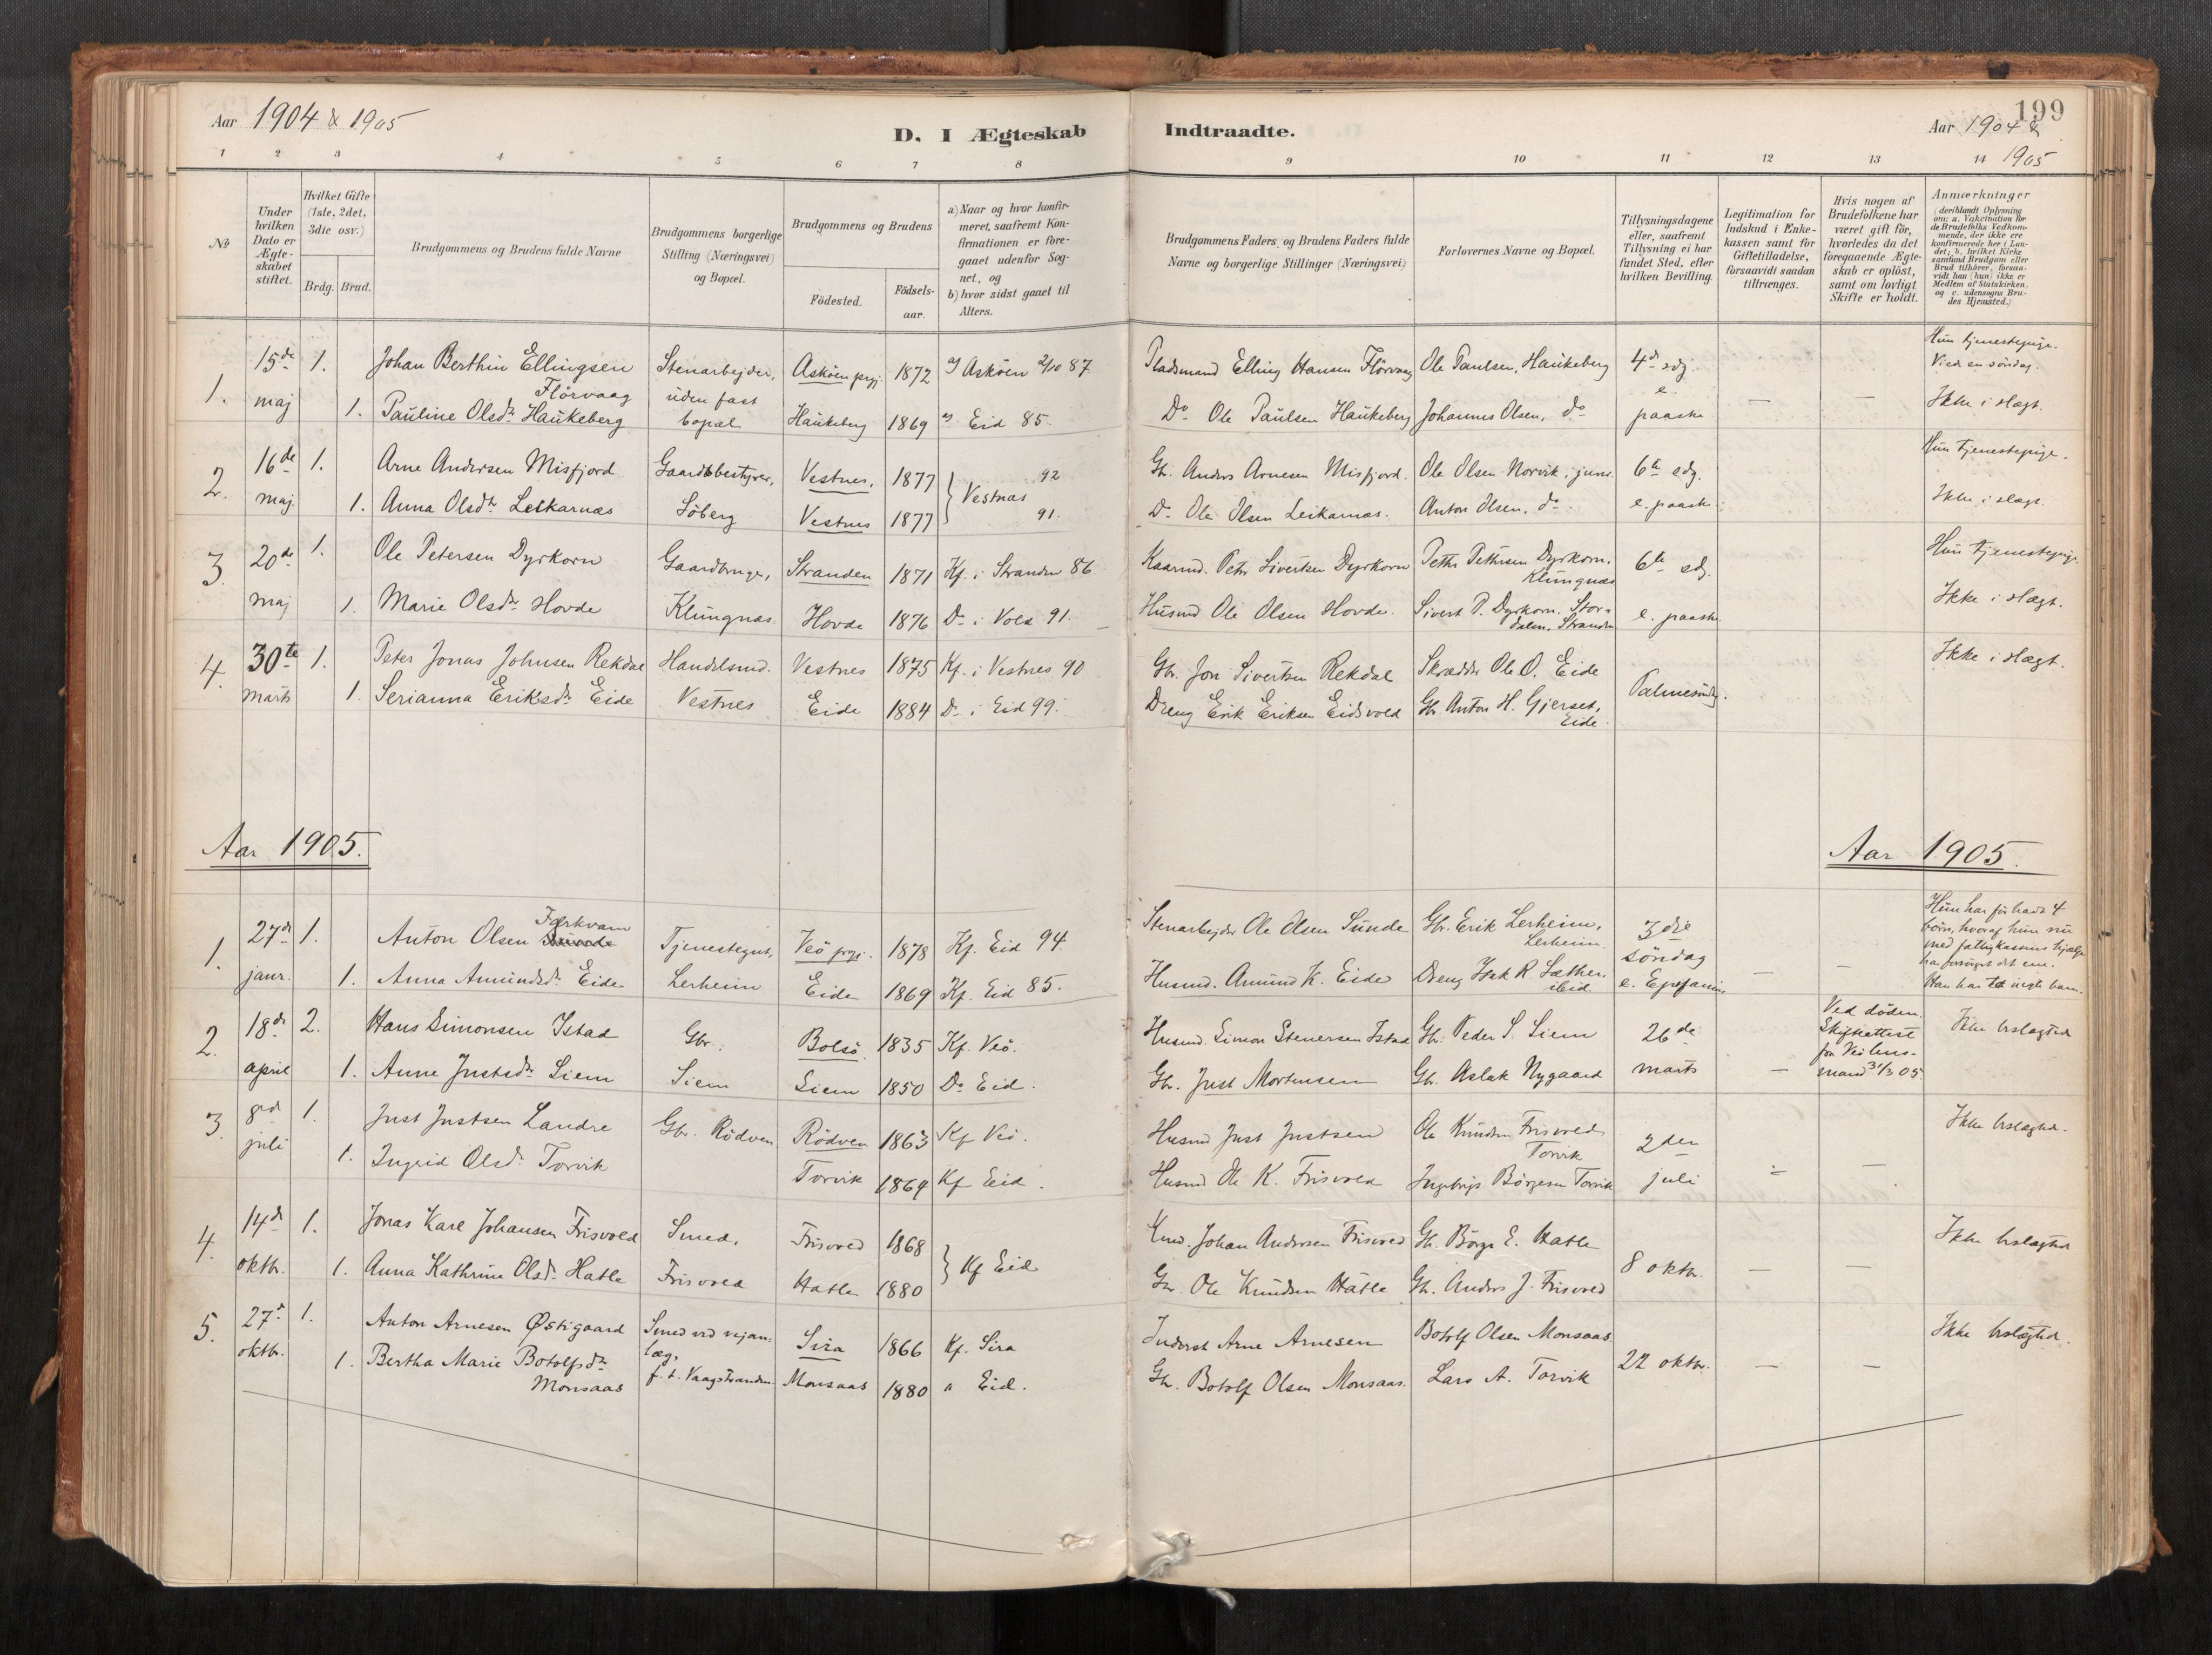 Aar 1904 & 1905
D. I Ægteskab
Indtraadte.
199
Aar 1904 &
1905
1 2 3 4 5 6 7 8 9 10 11 12 13 14
No
Under hvilken Dato er Ægteskabet stiftet.
Hvilket Gifte (1ste, 2det, 3die osv.)
Brdg. Brud.
Brudgommens og Brudens fulde Navne
Brudgommens borgerlige Stilling (Næringsvei) og Bopæl.
Brudgommens og Brudens
Födested.
Födsels-aar.
a) Naar og hvor konfirmeret, saafremt Konfirmationen er foregaaet udenfor Sognet, og
b) hvor sidst gaaet til Alters.
Brudgommens Faders og Brudens Faders fulde Navne og borgerlige Stillinger (Næringsvei)
Forlovernes Navne og Bopæl.
Tillysningsdagene eller, saafremt Tillysning ei har fundet Sted, efter hvilken Bevilling.
Legitimation for Indskud i Enkekassen samt for Giftetilladelse, forsaavidt saadan tiltrænges.
Hvis nogen af Brudefolkene har været gift för, hvorledes da det foregaaende Ægteskab er oplöst, samt om lovligt Skifte er holdt.
Anmærkninger
(deriblandt Oplysning om: a. Vakcination for de Brudefolks Vedkommende, der ikke ere konfirmerede her i Landet; b. hvilket Kirkesamfund Brudgom eller Brud tilhörer, forsaavidt han (hun) ikke er Medlem af Statskirken, og c. udensogns Brudes Hjemsted.)
1. 15de maj 1. Johan Berthin Ellingsen Flörvaag Stenarbejder, uden fast bopæl Asköen prgj. 1872 a) Asköen 2/10 87. Pladsmand Elling Hansen Flörvaag Ole Paulsen, Haukeberg 4de sdg. e. paaske — — Hun tjenestepige. Viet en söndag.
1. Pauline Olsdr. Haukeberg Haukeberg 1869 a) Eid 85. Do Ole Paulsen Haukeberg Johannes Olsen, do Ikke i slægt.
2. 16de maj 1. Arne Andersen Misfjord Gaardsbestyrer, Söberg Vestnes, 1877 } Vestnæs 92 Gbr. Anders Arnesen Misfjord. Ole Olsen Norvik, jun. 6te sdg. e. paaske. Hun tjenestepige.
1. Anna Olsdr. Leikarnæs Vestnes 1877 91. Do Ole Olsen Leikarnæs. Anton Olsen, do Ikke i slægt.
3. 20de maj 1. Ole Petersen Dyrkorn Gaardbruger, Klungnæs. Stranden 1871 Kf. i Stranden 86 Kaarmd. Peter Sivertsen Dyrkorn Petter Pettersen Dyrkorn, Klungnæs 6te sdg. e. paaske. Hun tjenestepige
1. Marie Olsdr. Hovde Hovde 1876 Do i Vold 91. Husmd Ole Olsen Hovde. Sivert P. Dyrkorn. Stordalen, Stranden Ikke i slægt.
4. 30te marts 1. Peter Jonas Johnsen Rekdal Handelsmd. Vestnes Vestnes 1875 Kf. i Vestnes 90 Gbr. Jon Sivertsen Rekdal Skrædder Ole O. Eide Palmesöndg. Ikke i slægt.
1. Serianna Eriksdr. Eide Eide 1884 Do i Eid 99. Dreng Erik Eriksen Eidsvold Gbr. Anton H. Gjerset, Eide
Aar 1905. Aar 1905.
1. 27de janr. 1. Anton Olsen Sunde Færkvam Tjenestegut, Lerheim Veö prgj. 1878 Kf. Eid 94. Stenarbejder Ole Olsen Sunde Gbr. Erik Lerheim, Lerheim. 3die söndag e. Epifanias — — Hun har för havt 4 börn, hvoraf hun nu med fattigkassens hjælp har forsörget det ene. Han har intet uægte barn.
1. Anna Amundsdr. Eide Eide 1869 Kf. Eid 85. Husmd. Amund K. Eide Dreng Isak R. Sæther, ibid.
2. 18de april 2. Hans Simonsen Istad Gbr. Siem Bolsö. 1835 Kf. Veö. Husmd. Simon Stenersen Istad Gbr. Peder S. Siem 26de marts — Ved döden. Skifteattest fra Veö lensmand 31/3 05 Ikke beslægted
1. Anne Justsdr. Siem Siem 1850 Do Eid. Gbr. Just Mortensen Gbr. Aslak Nygaard
3. 8de juli 1. Just Justsen Landre Gbr. Rödven Rödven 1863 Kf Veö. Husmd Just Justsen Ole Knudsen Frisvold Torvik 2den juli — — Ikke beslægted.
1. Ingrid Olsdr. Torvik Torvik 1869 Kf Eid. Husmd Ole K. Frisvold Ingebrigt Börgesen Torvik
4. 14de oktbr. 1. Jonas Karl Johansen Frisvold Smed, Frisvold Frisvold 1868 } Kf Eid Husmd. Johan Andersen Frisvold Gbr. Börge E. Hatle 8 oktbr. — — Ikke beslægted
1. Anna Kathrine Olsdr. Hatle Hatle 1880 Gbr. Ole Knudsen Hatle Gbr. Anders J. Frisvold
5. 27de oktbr. 1. Anton Arnesen Østigaard Smed ved vejanlæg, f. t. Vaagstranden Sira 1866 Kf. Sira Inderst Arne Arnesen Botolf Olsen Monsaas 22 oktbr. — — Ikke beslægted.
1. Bertha Marie Botolfsdr. Monsaas Monsaas 1880 " Eid. Gbr. Botolf Olsen Monsaas. Lars A. Torvik